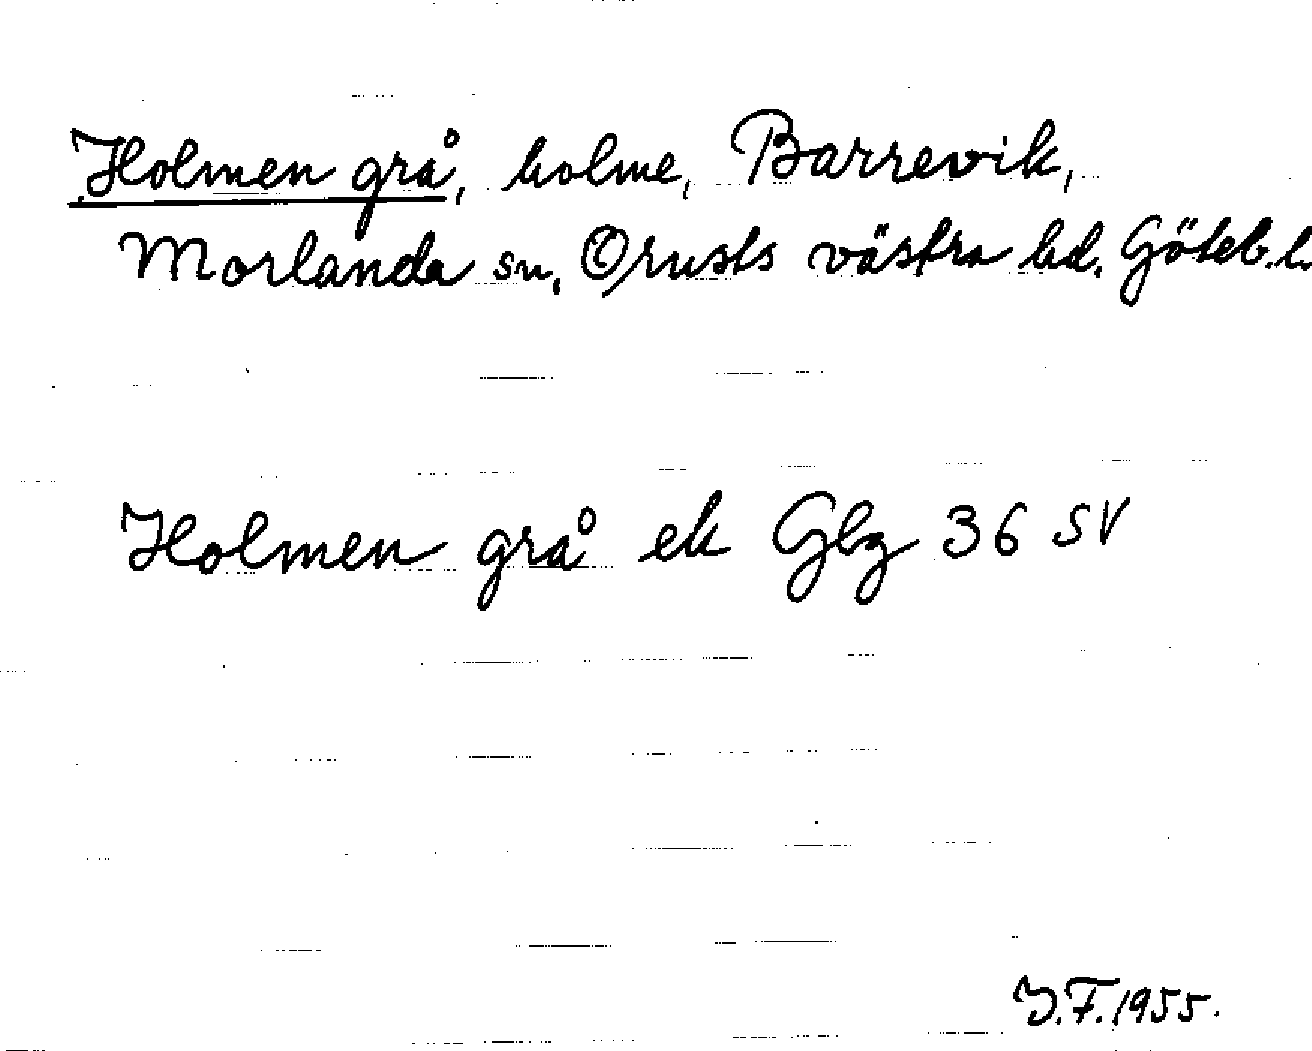 Holmen grå, holme, Barrevik,
Morlanda sn, Orusts västra hd. Göteb. l.
Holmen grå ek Gbg 36 SV
J.F. 1955.